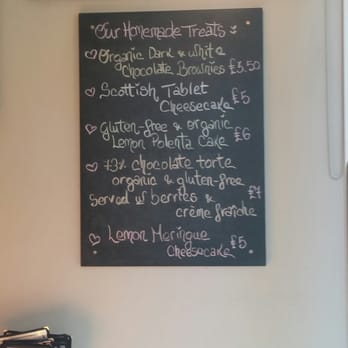 Our Homemade Treats
Organic Dark & White
Chocolate Brownies £3.50
Scottish Tablet
Cheesecake £5
Gluten-free & organic
Lemon Polenta Cake £6
73% chocolate torte
organic & gluten-free
Served w berries & £7
crème fraîche
Lemon Meringue
Cheesecake £5